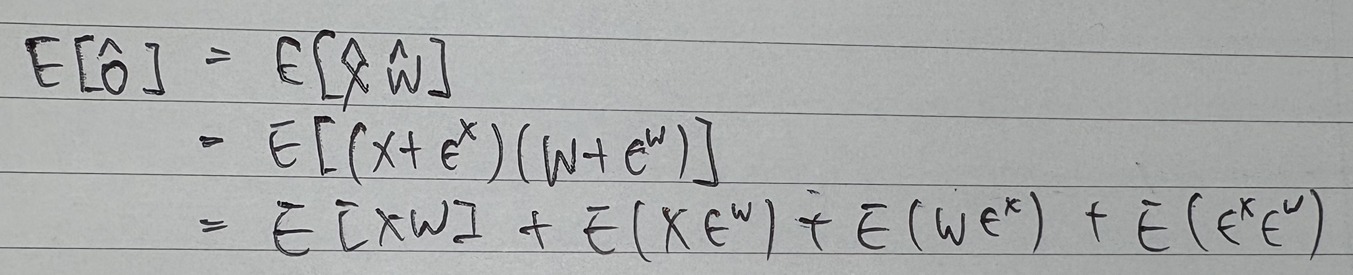 E[ô] = E[x̂ ŵ]
= E[(x+ϵ^x)(W+ϵ^w)]
= E[XW] + E(Xϵ^w) + E(Wϵ^x) + E(ϵ^xϵ^w)